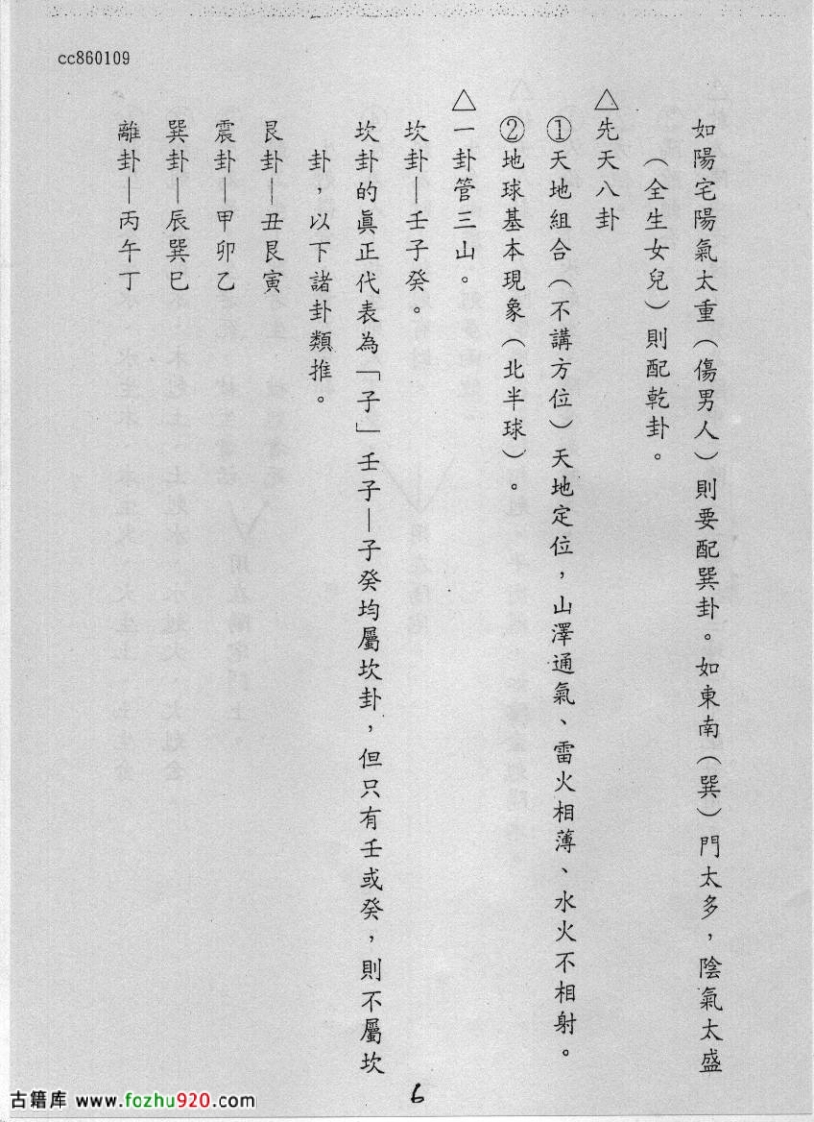 cc860109
如陽宅陽氣太重（傷男人）則要配巽卦。如東南（巽）門太多，陰氣太盛
（全生女兒）則配乾卦。
△先天八卦
①天地組合（不講方位）天地定位，山澤通氣、雷火相薄、水火不相射。
②地球基本現象（北半球）。
△一卦管三山。
坎卦—壬子癸。
坎卦的眞正代表為「子」壬子—子癸均屬坎卦，但只有壬或癸，則不屬坎
卦，以下諸卦類推。
艮卦—丑艮寅
震卦—甲卯乙
巽卦—辰巽巳
離卦—丙午丁
6
古籍库 www.fozhu920.com